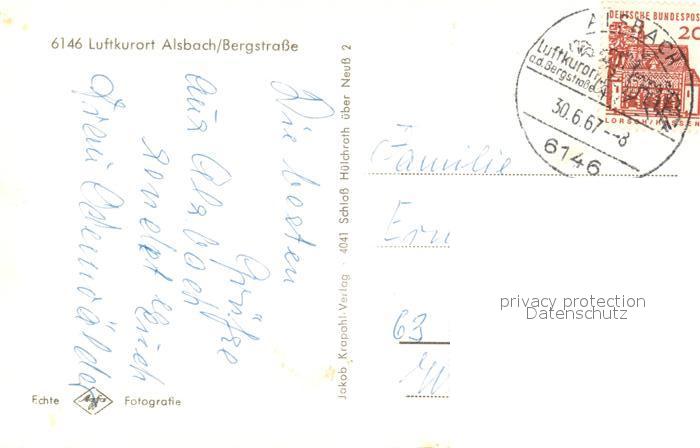 6146 Luftkurort Alsbach/Bergstraße
Die besten
Grüße
aus Alsbach
sendet Euch
Frau Odenwälder
Echte Agfa Fotografie
Jakob Krapohl-Verlag · 4041 Schloß Hülchrath über Neuß 2
DEUTSCHE BUNDESPOS
20
LORSCH/HESSEN
ALSBACH
Luftkurort
a.d.Bergstraße
30.6.67--8
6146
Familie
Ern
63
privacy protection
Datenschutz